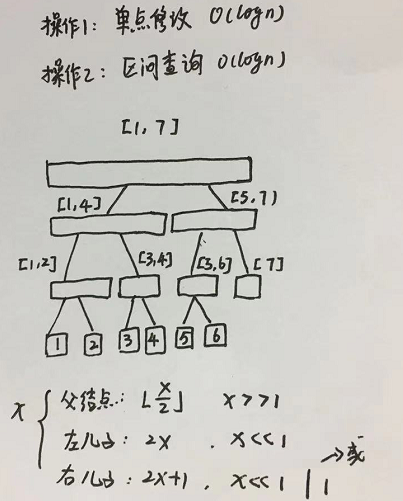 操作1: 单点修改 O(logn)
操作2: 区间查询 O(logn)
[1,7]
[1,4] [5,7)
[1,2] [3,4] [5,6] [7]
1 2 3 4 5 6
父结点: ⌊x/2⌋ x>>1
x { 左儿子: 2x . x<<1 →或
右儿子: 2x+1 . x<<1 | 1